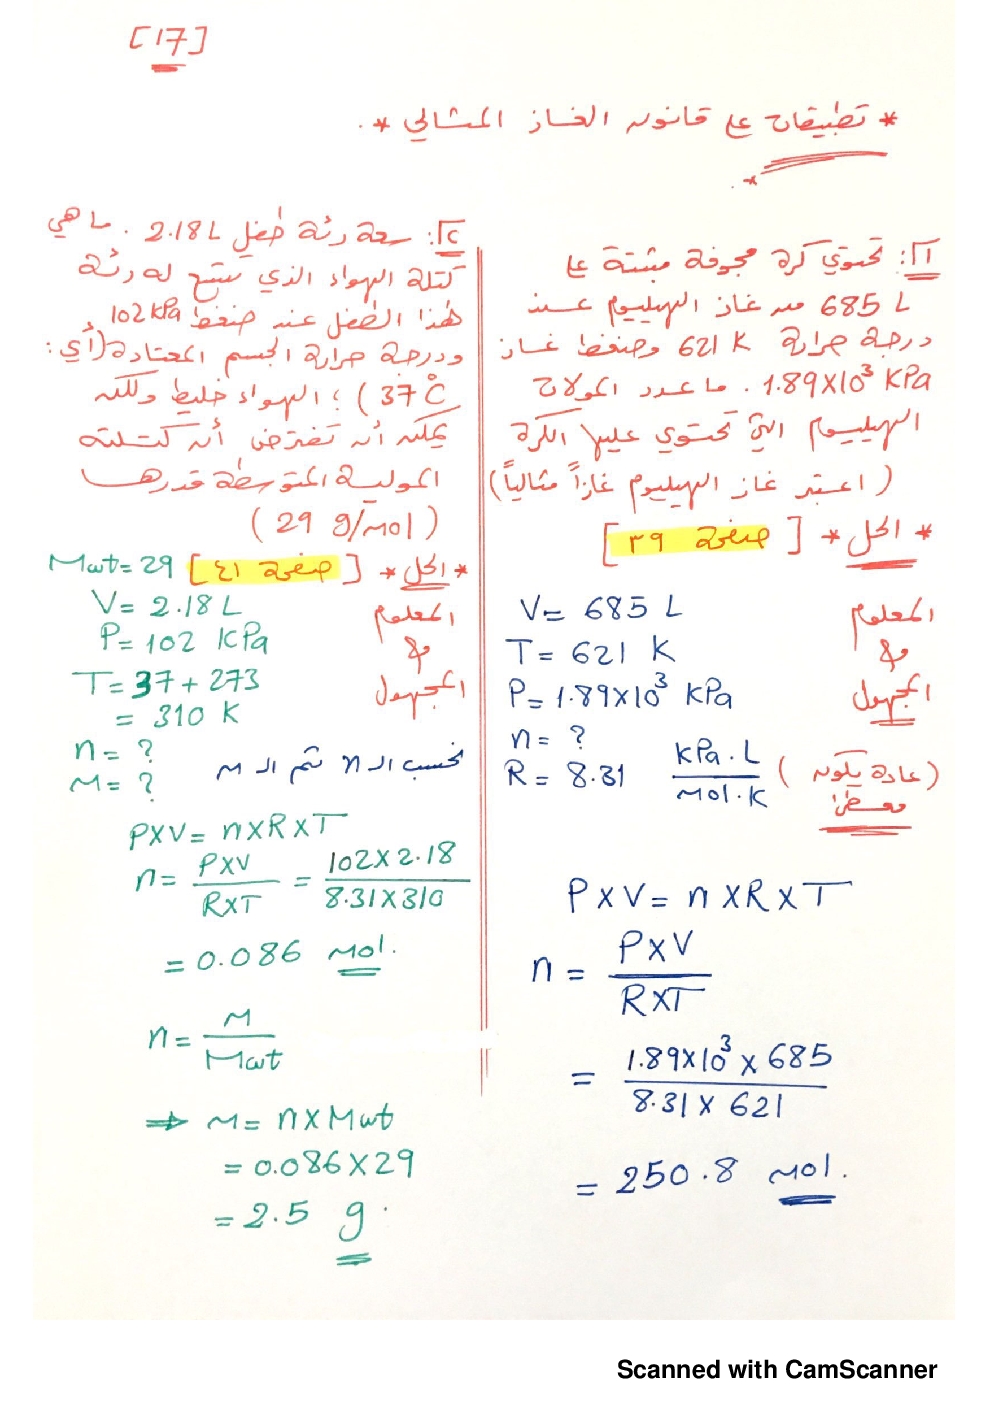 [17]
* تطبيقات على قانون الغاز المثالي *.
١: تحتوي كرة مجوفة مثبتة على
685 L من غاز الهيليوم عند
درجة حرارة 621 K وضغط غاز
1.89X10³ KPa . ما عدد المولات
الهيليوم التي تحتوي عليها الكرة
(اعتبر غاز الهيليوم غازاً مثالياً)
* الحل * [صفحة ٣٩]
المعلوم
و
المجهول
V= 685 L
T= 621 K
P= 1.89X10³ KPa
n= ?
R= 8.31 kPa.L / mol.K (عادة يكون معطى)
PXV= n XRXT
n = PXV / RXT
= 1.89X10³ X 685 / 8.31 X 621
= 250.8 mol.
٢: سعة رئة طفل 2.18 L . ما هي
كتلة الهواء الذي تتسع له رئة
هذا الطفل عند ضغط 102 kPa
ودرجة حرارة الجسم المعتادة (أي:
37°C) ؛ الهواء خليط ولكن
يمكن أن تفترض أن كتلته
المولية المتوسطة قدرها
(29 g/mol)
* الحل * [صفحة ٤١] Mwt= 29
المعلوم
و
المجهول
V= 2.18 L
P= 102 KPa
T= 37+ 273
= 310 K
n= ?
m= ?
نحسب الـ n ثم الـ m
PXV= nXRXT
n= PXV / RXT = 102X2.18 / 8.31X310
= 0.086 mol.
n= m / Mwt
⇒ m= nXMwt
= 0.086X29
= 2.5 g.
Scanned with CamScanner